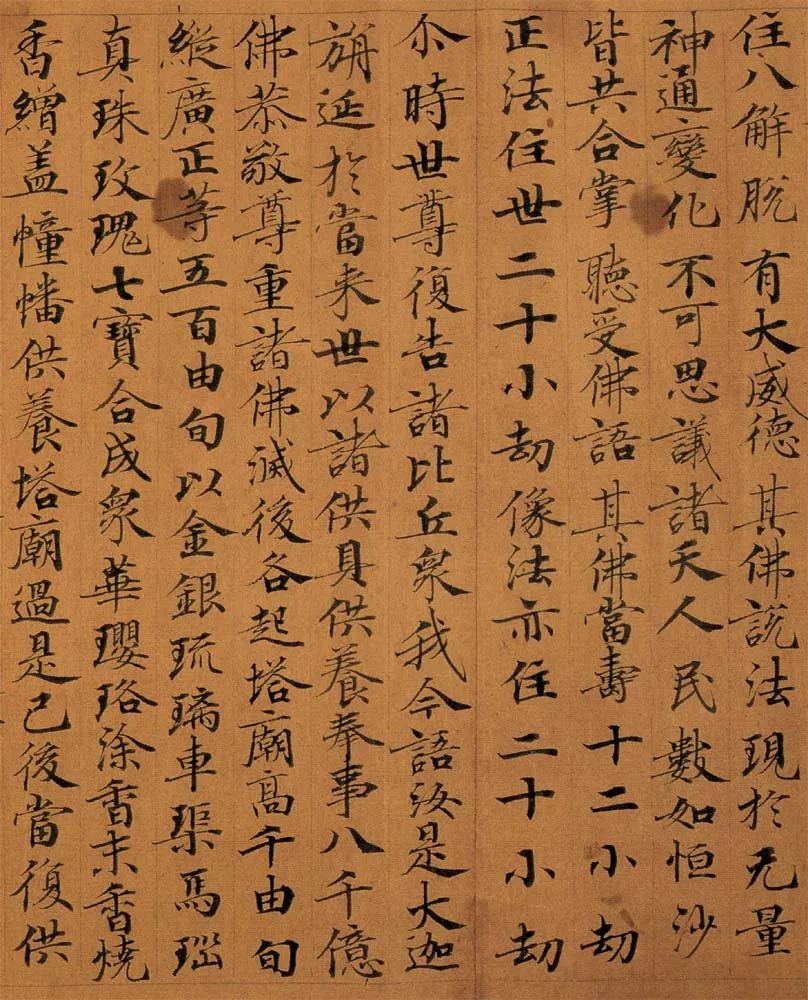 住八解脫 有大威德 其佛說法 現於无量
神通變化 不可思議 諸天人民 數如恒沙
皆共合掌 聽受佛語 其佛當壽 十二小劫
正法住世 二十小劫 像法亦住 二十小劫
尒時世尊復告諸比丘衆我今語汝是大迦
旃延於當来世以諸供具供養奉事八千億
佛恭敬尊重諸佛滅後各起塔廟高千由旬
縱廣正等五百由旬以金銀琉璃車𤦲馬瑙
真珠玫瑰七寶合成衆華瓔珞塗香末香燒
香繒盖幢幡供養塔廟過是已後當復供